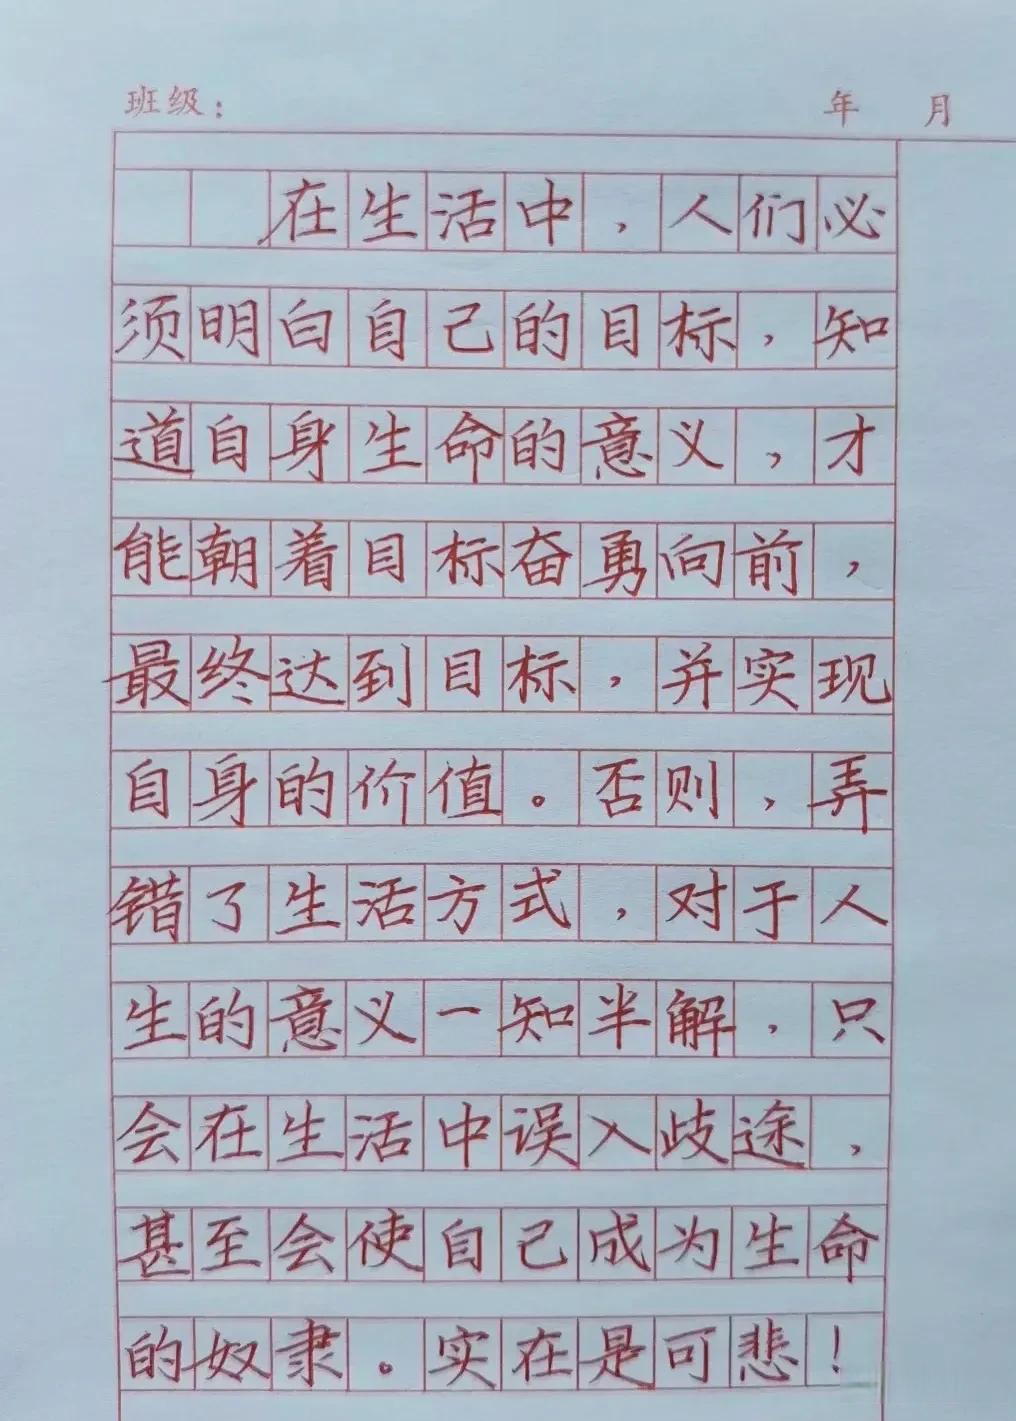 班级： 年 月
在生活中，人们必
须明白自己的目标，知
道自身生命的意义，才
能朝着目标奋勇向前，
最终达到目标，并实现
自身的价值。否则，弄
错了生活方式，对于人
生的意义一知半解，只
会在生活中误入歧途，
甚至会使自己成为生命
的奴隶。实在是可悲！